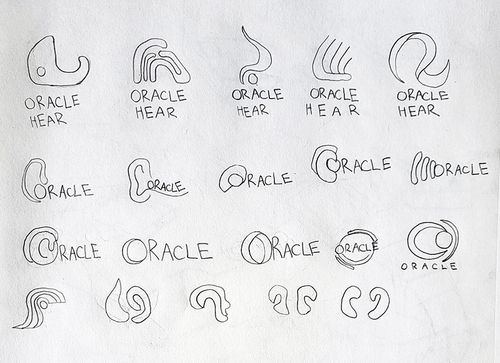 ORACLE HEAR
ORACLE HEAR
ORACLE HEAR
ORACLE HEAR
ORACLE HEAR
ORACLE
ORACLE
ORACLE
ORACLE
ORACLE
ORACLE
ORACLE
ORACLE
ORACLE
ORACLE